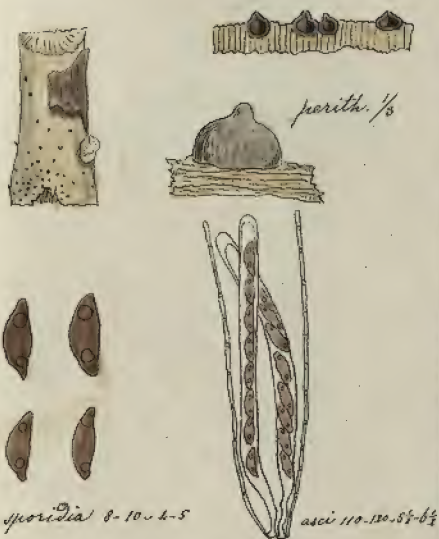 perith. 1/3
sporidia 8-10 ‿ 4-5
asci 110-120 ‿ 5½-6½